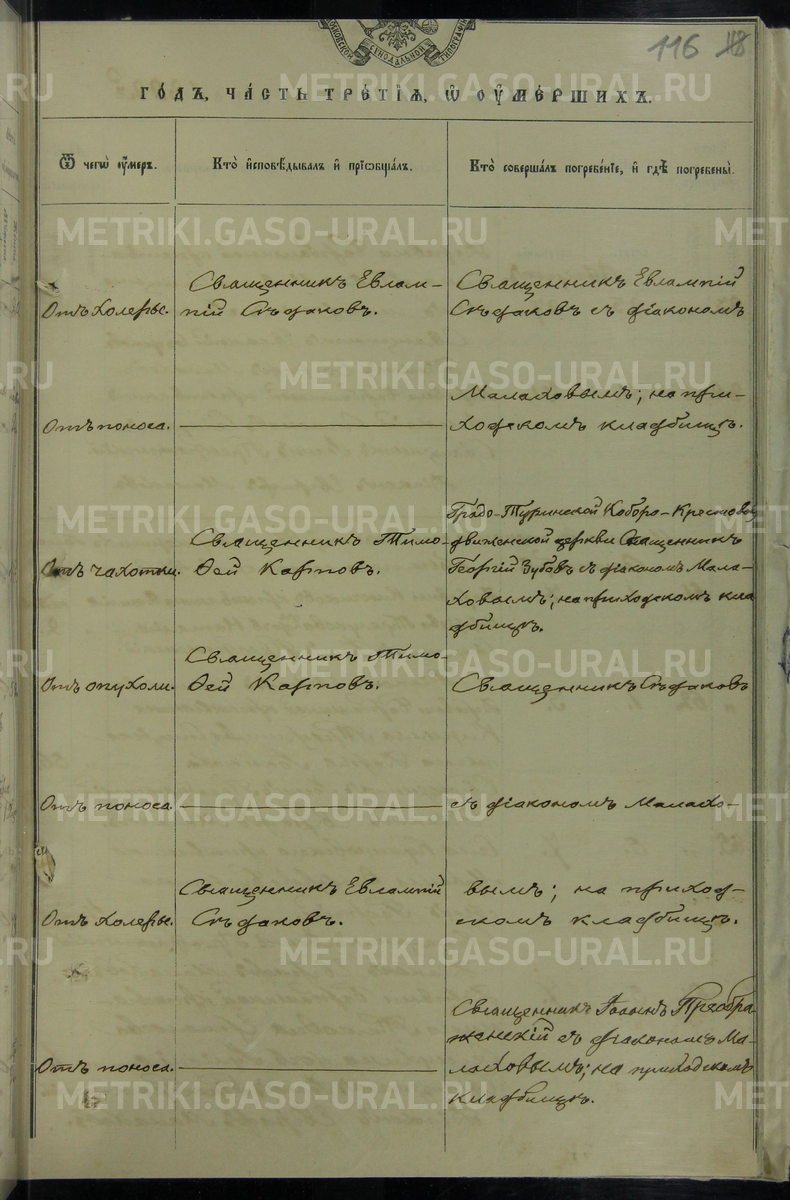 116 118
СѴНОДАЛЬНОЙ ТИПОГРАФІИ
ГО́ДЪ, ЧА́СТЬ ТРЕ́ТІѦ, Ѡ҆ ОУ҆МЕ́РШИХЪ.
Ѿ чегѡ̀ оу҆́меръ.
Кто̀ и҆сповѣ́дывалъ и҆ прїѡбща́лъ.
Кто̀ соверша́лъ погребе́нїе, и҆ гдѣ̀ погребены̀.
Отъ холеры.
Священникъ Евлам-
пій Сѣдаковъ.
Священникъ Евлампій
Сѣдаковъ съ діакономъ
Отъ поноса.
Малаховымъ; на при-
ходскомъ кладбищѣ.
Отъ чахотки.
Священникъ Тимо-
ѳей Карповъ.
Градо-Туринской Соборо-Крестовоз
движенской церкви Священникъ
Георгій Зубовъ съ діакономъ Мала-
ховымъ; на приходскомъ кла
дбищѣ.
Отъ опухоли.
Священникъ Тимо-
ѳей Карповъ.
Священникъ Сѣдаковъ
Отъ поноса.
съ діакономъ Малахо-
Отъ холеры.
Священникъ Евлампій
Сѣдаковъ.
вымъ; на приход-
скомъ кладбищѣ.
Отъ поноса.
Священникъ Іоаннъ Преобра-
женскій съ діакономъ Ма-
лаховымъ; на приходскомъ
кладбищѣ.
METRIKI.GASO-URAL.RU